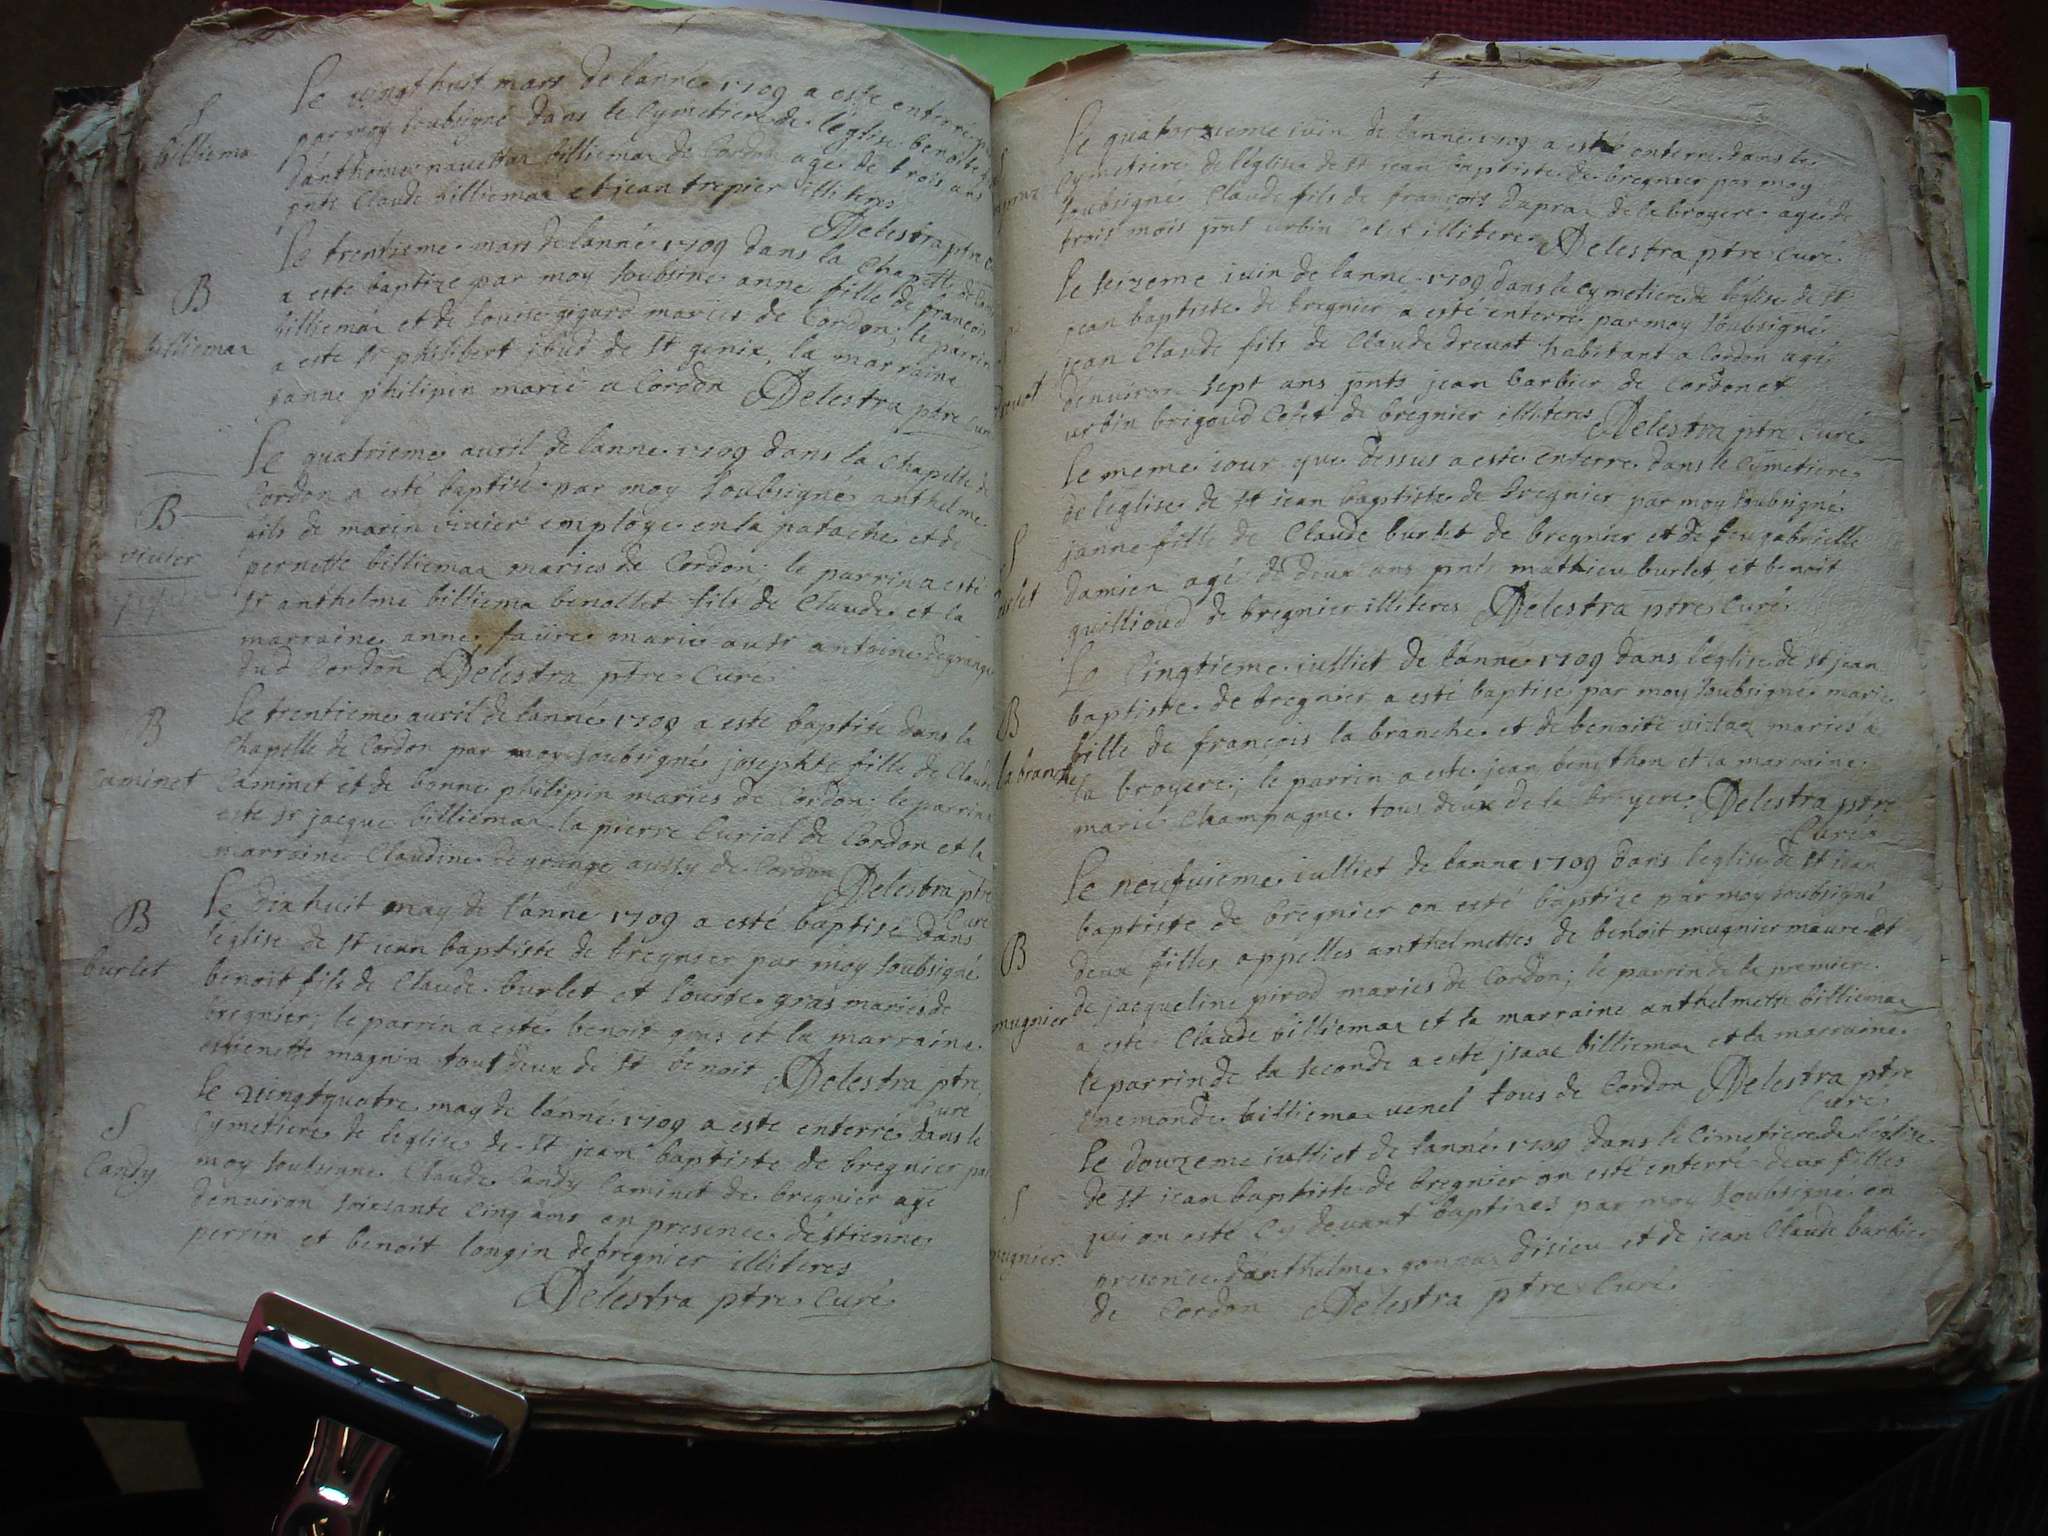 Le vingt huit mars de lanné 1709 a este enterré
S
par moy soubsigné dans le Cymetiere de leglise benoite
billiema
danthoine billiemaz de Cordon age de trois ans
pnts Claude billiemaz et jean trepier illiteres
Delestra ptre
Le trentieme mars de lanné 1709 dans la Chapelle de
B
a este baptize par moy soubsine anne fille de francois
billiemaz
billiemaz et de Louise gigard maries de Cordon, le parrin
a este sr philibert de st genix, la marraine
janne philipin marié a Cordon Delestra ptre Curé
Le quatrieme auril de lanne 1709 dans la Chapelle de
Cordon a esté baptisé par moy soubsigné anthelme
B
fils de marin vivier employe en la patache et de
vivier
pernette billiemaz maries de Cordon; le parrin a esté
sr anthelme billiema benollet fils de Claude et la
marraine anne faure marie au sr antoine degrange
dud Cordon Delestra ptre Curé
B
Le trentieme auril de lanné 1709 a este baptise dans la
Chapelle de Cordon par moy soubsigné josephte fille de Claude
Caminet
Caminet et de bonne philipin maries de Cordon; le parrin a
este sr jacque billiemaz la pierre Curial de Cordon et la
marraine Claudine degrange aussy de Cordon
Delestra ptre
Curé
B
Le dix huit may de lanne 1709 a esté baptisé dans
leglise de st iean baptiste de bregnier par moy soubsigné
burlet
benoit fils de Claude burlet et Lourse gras maries de
bregnier; le parrin a esté benoit gras et la marraine
estienette magnin tout deux de st benoit Delestra ptre
Curé
Le vingtquatre may de lanné 1709 a este enterré dans le
S
Cymetiere de leglise de st jean baptiste de bregnier par
Candy
moy soubsigne Claude Candy Caminet de bregnier agé
denuiron soixsante Cinq ans en presence déstienne
perrin et benoit longin de bregnier illiteres
Delestra ptre Curé
Le quatorzieme iuin de lanne 1709 a esté enterre dans le
Cymetiere de léglise de st jean baptiste de bregnier par moy
soubsigne Claude fils de françois dupraz de la broyere agé de
trois mois pnt urbin Colet illitere Delestra ptre Curé
Le seizeme iuin de lanne 1709 dans le Cymetiere de leglise de st
jean baptiste de bregnier a esté enterré par moy soubsigné
jean Claude fils de Claude Dreuot habitant a Cordon agé
denuiron sept ans pnts jean barbier de Cordon et
urbin brigoud Colet de bregnier illiteres Delestra ptre Curé
Le meme iour que dessus a este enterre dans le Cymetiere
de leglise de st iean baptiste de bregnier par moy soubsigné
S
janne fille de Claude burlet de bregnier et de feu gabrielle
burlet
damien agé de deux ans pnts mathieu burlet et benoit
guillioud de bregnier illiteres Delestra ptre Curé
Le Cingtieme iulliet de lanne 1709 dans leglise de st jean
B
baptiste de bregnier a esté baptise par moy soubsigne marie
la branche
fille de françois la branche et de benoite maries a
la broyere; le parrin a este jean benethon et la marraine
marie Champagne tous deux de la broyere, Delestra ptre
Curé
Le neufuieme iulliet de lanne 1709 dans leglise de st iean
baptiste de bregnier on esté baptize par moy soubsigné
B
deux filles appelles anthelmettes de benoit mugnier maure et
mugnier
de jacqueline pirod maries de Cordon; le parrin de la premiere
a este Claude billiemaz et la marraine anthelmette billiemaz
le parrin de la seconde a esté jsaac billiemaz et la marraine
enemonde billiemaz venel tous de Cordon Delestra ptre
Curé
Le douzeme iulliet de lanné 1709 dans le Cimetiere de léglise
S
de st iean baptiste de bregnier on esté enterré deux filles
mugnier
qui on esté Cy deuant baptizes par moy soubsigné en
presence danthelme disieu et de iean Claude barbier
de Cordon Delestra ptre Curé